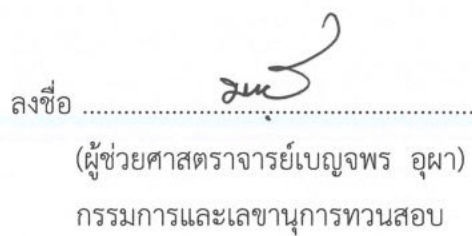 ลงชื่อ ........................................................
(ผู้ช่วยศาสตราจารย์เบญจพร อุผา)
กรรมการและเลขานุการทวนสอบ